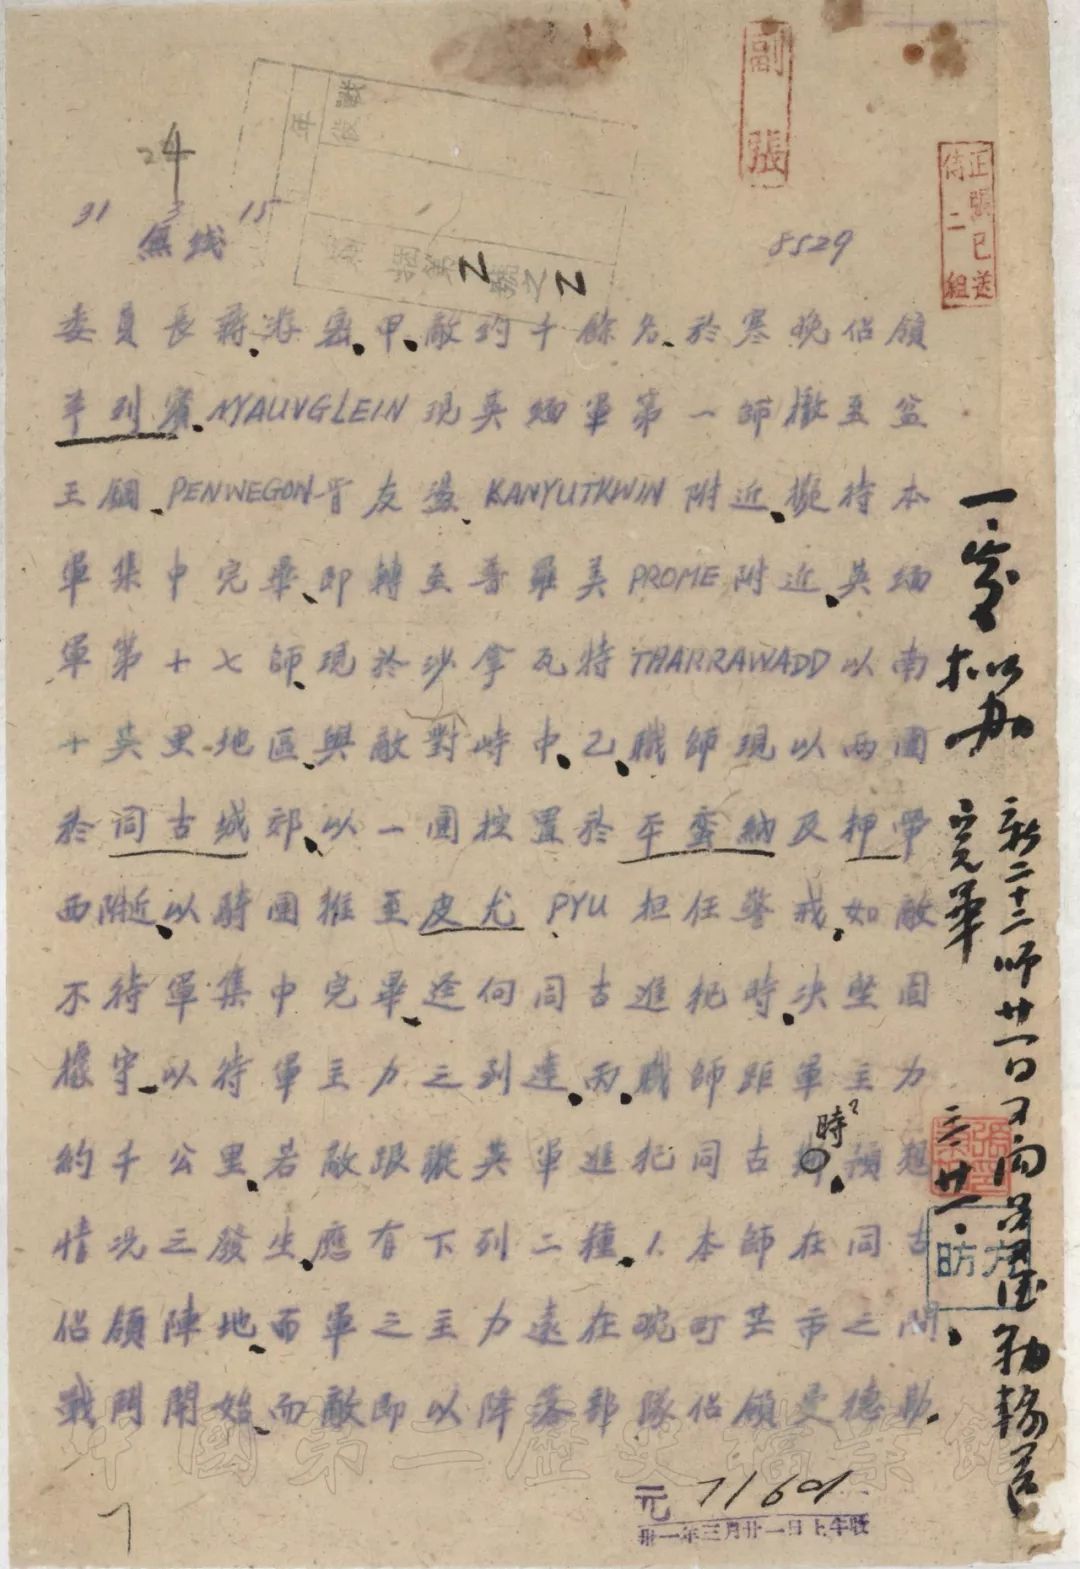 副張
正張已送
侍二組
24
31 3 15
無线 8529
戰役
年
號第2號之2
委員長蔣、游密、甲、敵約千餘名、於寒晚佔領
羊列賓、NYAUNGLEIN現英緬軍第一師撤至盆
王個、PENWEGON-皆友盪、KANYUTKWIN附近、擬待本
軍集中完畢、即轉至普羅美PROME附近、英緬
軍第十七師、現於沙拿瓦特THARRAWADD以南
十英里地區、與敵對峙中、乙、職師現以兩團
於同古城郊、以一團控置於平蛮納及押帶
西附近、以騎團推至皮尤PYU担任警戒、如敵
不待軍集中完畢、逕向同古進犯時、决堅固
據守、以待軍主力之到達、丙、職師距軍主力
約千公里、若敵跟蹤英軍進犯同古時預想
時?
情况之發生、應有下列二種、1.本師在同古
佔領陣地、而軍之主力遠在畹町芒市之間
戰鬥開始、而敵即以降落部隊佔領曼德勒、
一、發
擬办
新二十二師廿一日可向曼德勒輸送
完畢
三、廿一、
方昉
元 71601
卅一年三月廿一日上午收
7
中國第二歷史檔案館